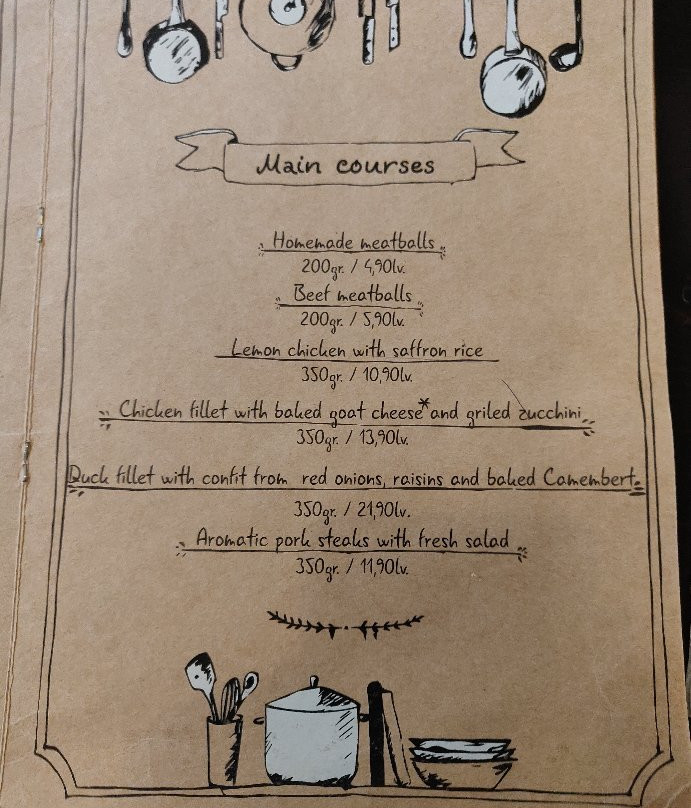 Main courses
Homemade meatballs
200gr. / 4,90lv.
Beef meatballs
200gr. / 5,90lv.
Lemon chicken with saffron rice
350gr. / 10,90lv.
Chicken fillet with baked goat cheese* and griled zucchini
350gr. / 13,90lv.
Duck fillet with confit from red onions, raisins and baked Camembert
350gr. / 21,90lv.
Aromatic pork steaks with fresh salad
350gr. / 11,90lv.